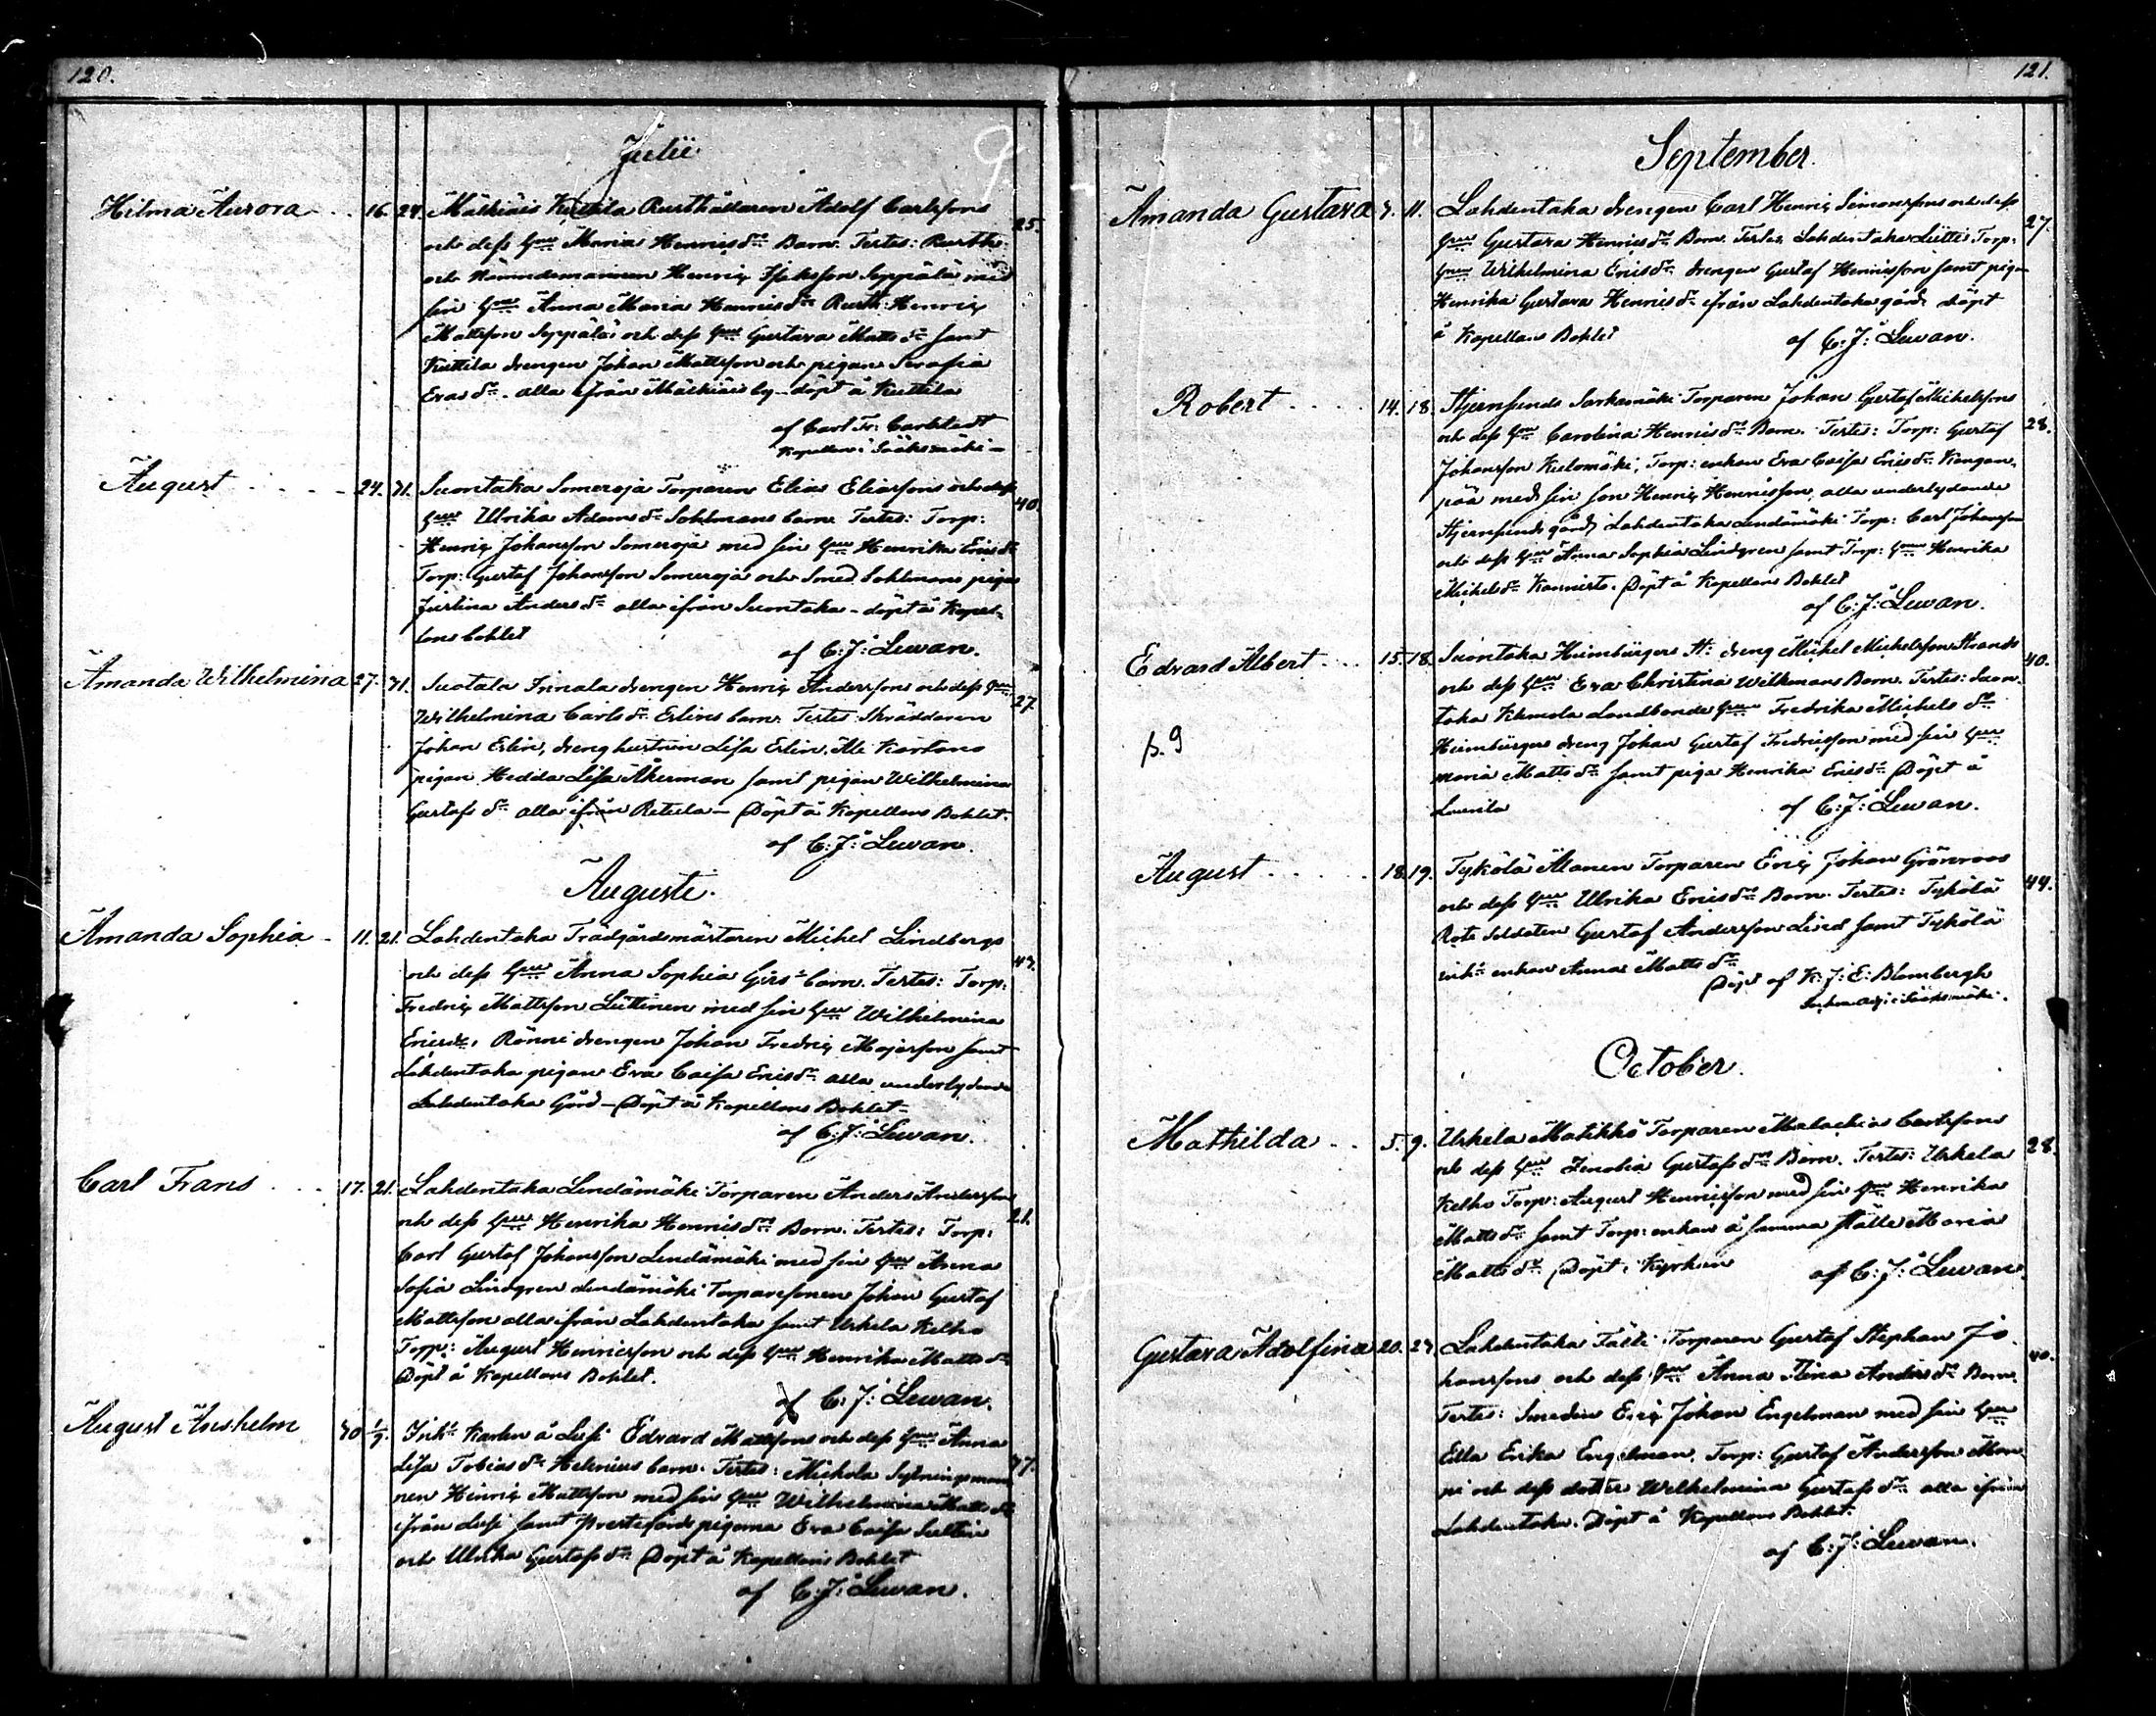 120.
Julii
Hilma Aurora . . 16. 24. Mälkiäis Kuttila Rusthållaren Adolf Carlssons 25.
och dess hu Maria Henricsdr Barn. Testes: Rusth:
och Nämndemannen Henric Isaksson Seppälä med
sin hu Anna Maria Henricsdr Rusth: Henric
Mattsson Seppälä och dess hu Gustava Mattsdr samt
Kuttila drengen Johan Mattsson och pigan Serafia
Evasdr. alla ifrån Mälkiäis by - döpt å Kuttila
af Carl Fr: Carlstedt
Kapellan i Sääksmäki -
August . . . . 24. 31. Suontaka Someroja Torparen Elias Eliassons och dess 40.
hu Ulrika Adamsdr Sohlmans barn. Testes: Torp:
Henric Johansson Someroja med sin hu Henrika Ericsdr
Torp: Gustaf Johansson Someroja och Smed Sohlmans pigan
Justina Andersdr alla ifrån Suontaka - döpt å Kapel-
lans bohlet
af C: J: Lewan.
Amanda Wilhelmina 27. 31. Suotala Innala drengen Henric Anderssons och dess hu 27.
Wilhelmina Carlsdr Erlins barn. Testes Skräddaren
Johan Erlin, drenghustrun Lisa Erlin, Kartano
pigan Hedda Lisa Åkerman samt pigan Wilhelmina
Gustafsdr alla ifrån Retula - Döpt å Kapellans Bohlet.
af C: J: Lewan.
Augusti.
Amanda Sophia - 11. 21. Lahdentaka Trädgårdsmästaren Michel Lindbergs 43.
och dess hu Anna Sophia barn. Testes: Torp:
Fredric Mattsson Lüttinen med sin hu Wilhelmina
Ericsdr, Rönni drengen Johan Fredric Majasson samt
Lahdentaka pigan Eva Caisa Ericsdr alla underlydande
Lahdentaka Gård - Döpt å Kapellans Bohlet -
af C: J: Lewan.
Carl Frans . . . 17. 21. Lahdentaka Lendämäki Torparen Anders Anderssons 21.
och dess hu Henrika Henricsdr Barn. Testes: Torp:
Carl Gustaf Johansson Lendämäki med sin hu Anna
Sofia Lindgren Lendämäki Torparesonen Johan Gustaf
Mattsson alla ifrån Lahdentaka samt Uskela Kelho
Torp: August Henricsson och dess hu Henrika Mattsdr
Döpt å Kapellans Bohlet.
af C: J: Lewan.
August Anshelm 30 1/9. Inhs Karlen å Edvard Mattssons och dess hu Anna 37.
Lisa Tobiasdr Helenius barn. Testes: Mickola Sytningsman-
nen Henric Mattsson med sin hu Wilhelmina Mattsdr
ifrån samt pigorna Eva Caisa
och Ulrika Gustafsdr Döpt å Kapellans Bohlet
af C: J: Lewan.
121.
September.
Amanda Gustava 3. 11. Lahdentaka drengen Carl Henric Simonssons och dess 27.
hu Gustava Henricsdr Barn. Testes, Lahdentaka Torp:
hu Wilhelmina Ericsdr drengen Gustaf Henricsson samt pigan
Henrika Gustava Henricsdr ifrån Lahdentaka gård. döpt
å Kapellans Bohlet
af C: J: Lewan.
Robert . . . . 14. 18. Stjernsunds Sarkamäki Torparen Johan Gustaf Michelssons 28.
och dess hu Carolina Henricsdr Barn. Testes: Torp: Gustaf
Johansson Kulomäki, Torp: enkan Eva Caisa Ericsdr Kangan-
pää med sin son Henric Henricsson, alla underlydande
Stjernsunds gård, Lahdentaka Lendämäki Torp: Carl Johansson
och dess hu Anna Sophia Lindgren samt Torp: hu Henrika
Michelsdr Kannisto. Döpt å Kapellans Bohlet
af C: J: Lewan.
Edvard Albert . . . 15. 18. Suontaka Heimbürgers St: dreng Michel Michelsson Strands 40.
och dess hu Eva Christina Wilkmans Barn. Testes: Suon-
taka Kemola Landbonde hu Fredrika Michelsdr
Heimbürgers dreng Johan Gustaf Fredricsson med sin hu
Maria Mattsdr samt piga Henrika Ericsdr Döpt å
af C: J: Lewan.
p. 9
August . . . . . 18. 19. Tykölä Alanen Torparen Eric Johan Grönroos 44.
och dess hu Ulrika Ericsdr Barn. Testes: Tykölä
Rote Soldaten Gustaf Andersson Lind samt Tykölä
inhs enkan Anna Mattsdr
Döpt af K: J: E: Blombergh
Sockne Adj: i Sääksmäki.
October.
Mathilda . . 5. 9. Uskela Matikko Torparen Malachias Carlssons 28.
och dess hu Zenobia Gustafsdr Barn. Testes: Uskela
Kelho Torp: August Henricsson med sin hu Henrika
Mattsdr samt Torp: enkan å samma ställe Maria
Mattsdr. Döpt i Kyrkan
af C: J: Lewan.
Gustava Adolfina 20. 23. Lahdentaka Torparen Gustaf Stephan Jo- 40.
hanssons och dess hu Anna Stina Andersdr Barn.
Testes: Smeden Eric Johan Engelman med sin hu
Edla Erika Engelman, Torp: Gustaf Andersson Man-
ni och dess dotter Wilhelmina Gustafsdr alla ifrån
Lahdentaka. Döpt å Kapellans Bohlet.
af C: J: Lewan.